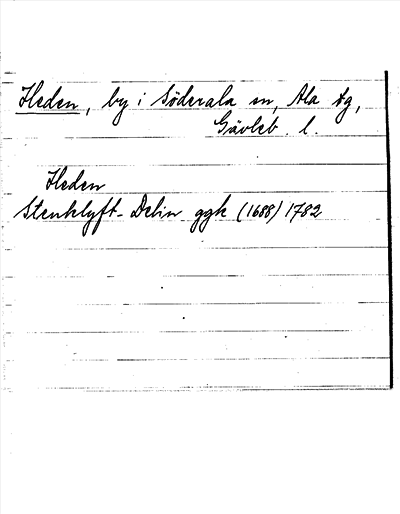 Heden, by i Söderala sn, Ala tg,
Gävleb. l.
Heden
Stenklyft-Delin ggk (1688) 1782